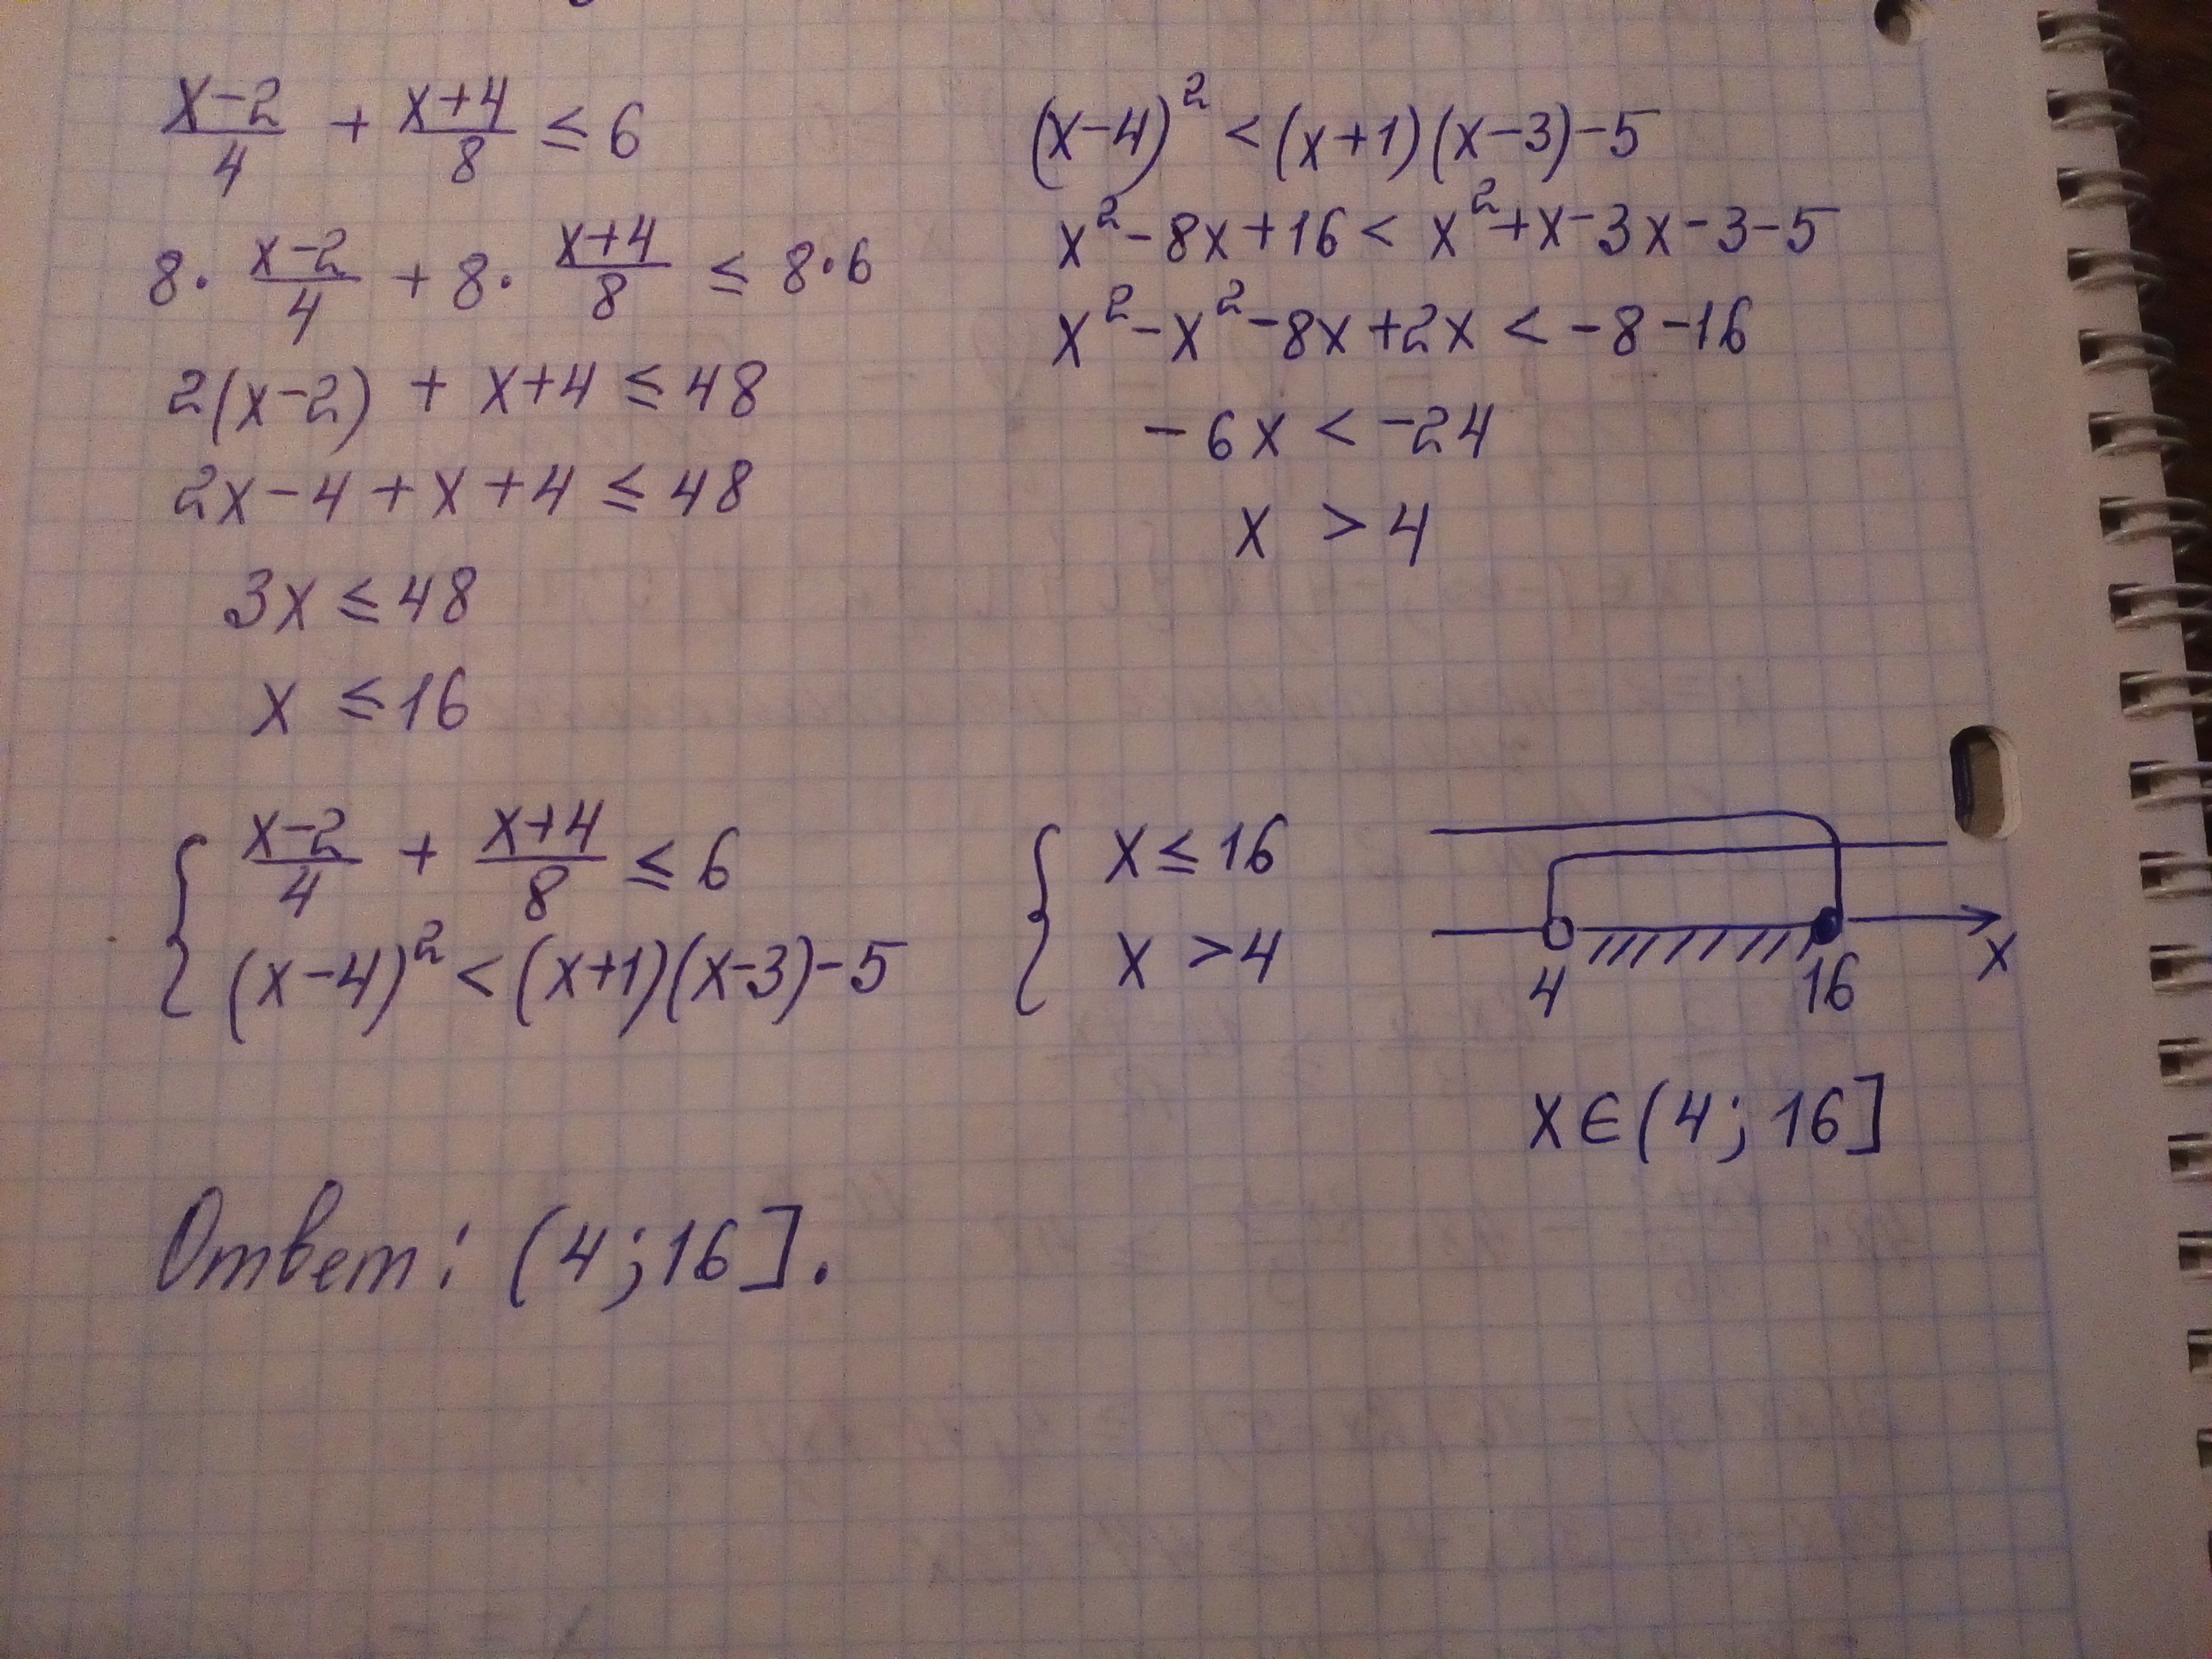 (x-2)/4 + (x+4)/8 ≤ 6
8·(x-2)/4 + 8·(x+4)/8 ≤ 8·6
2(x-2) + x+4 ≤ 48
2x-4+x+4 ≤ 48
3x ≤ 48
x ≤ 16
(x-4)² < (x+1)(x-3)-5
x²-8x+16 < x²+x-3x-3-5
x²-x²-8x+2x < -8-16
-6x < -24
x > 4
{ (x-2)/4 + (x+4)/8 ≤ 6
(x-4)² < (x+1)(x-3)-5
{ x ≤ 16
x > 4
4 16 x
x∈(4; 16]
Ответ: (4; 16].